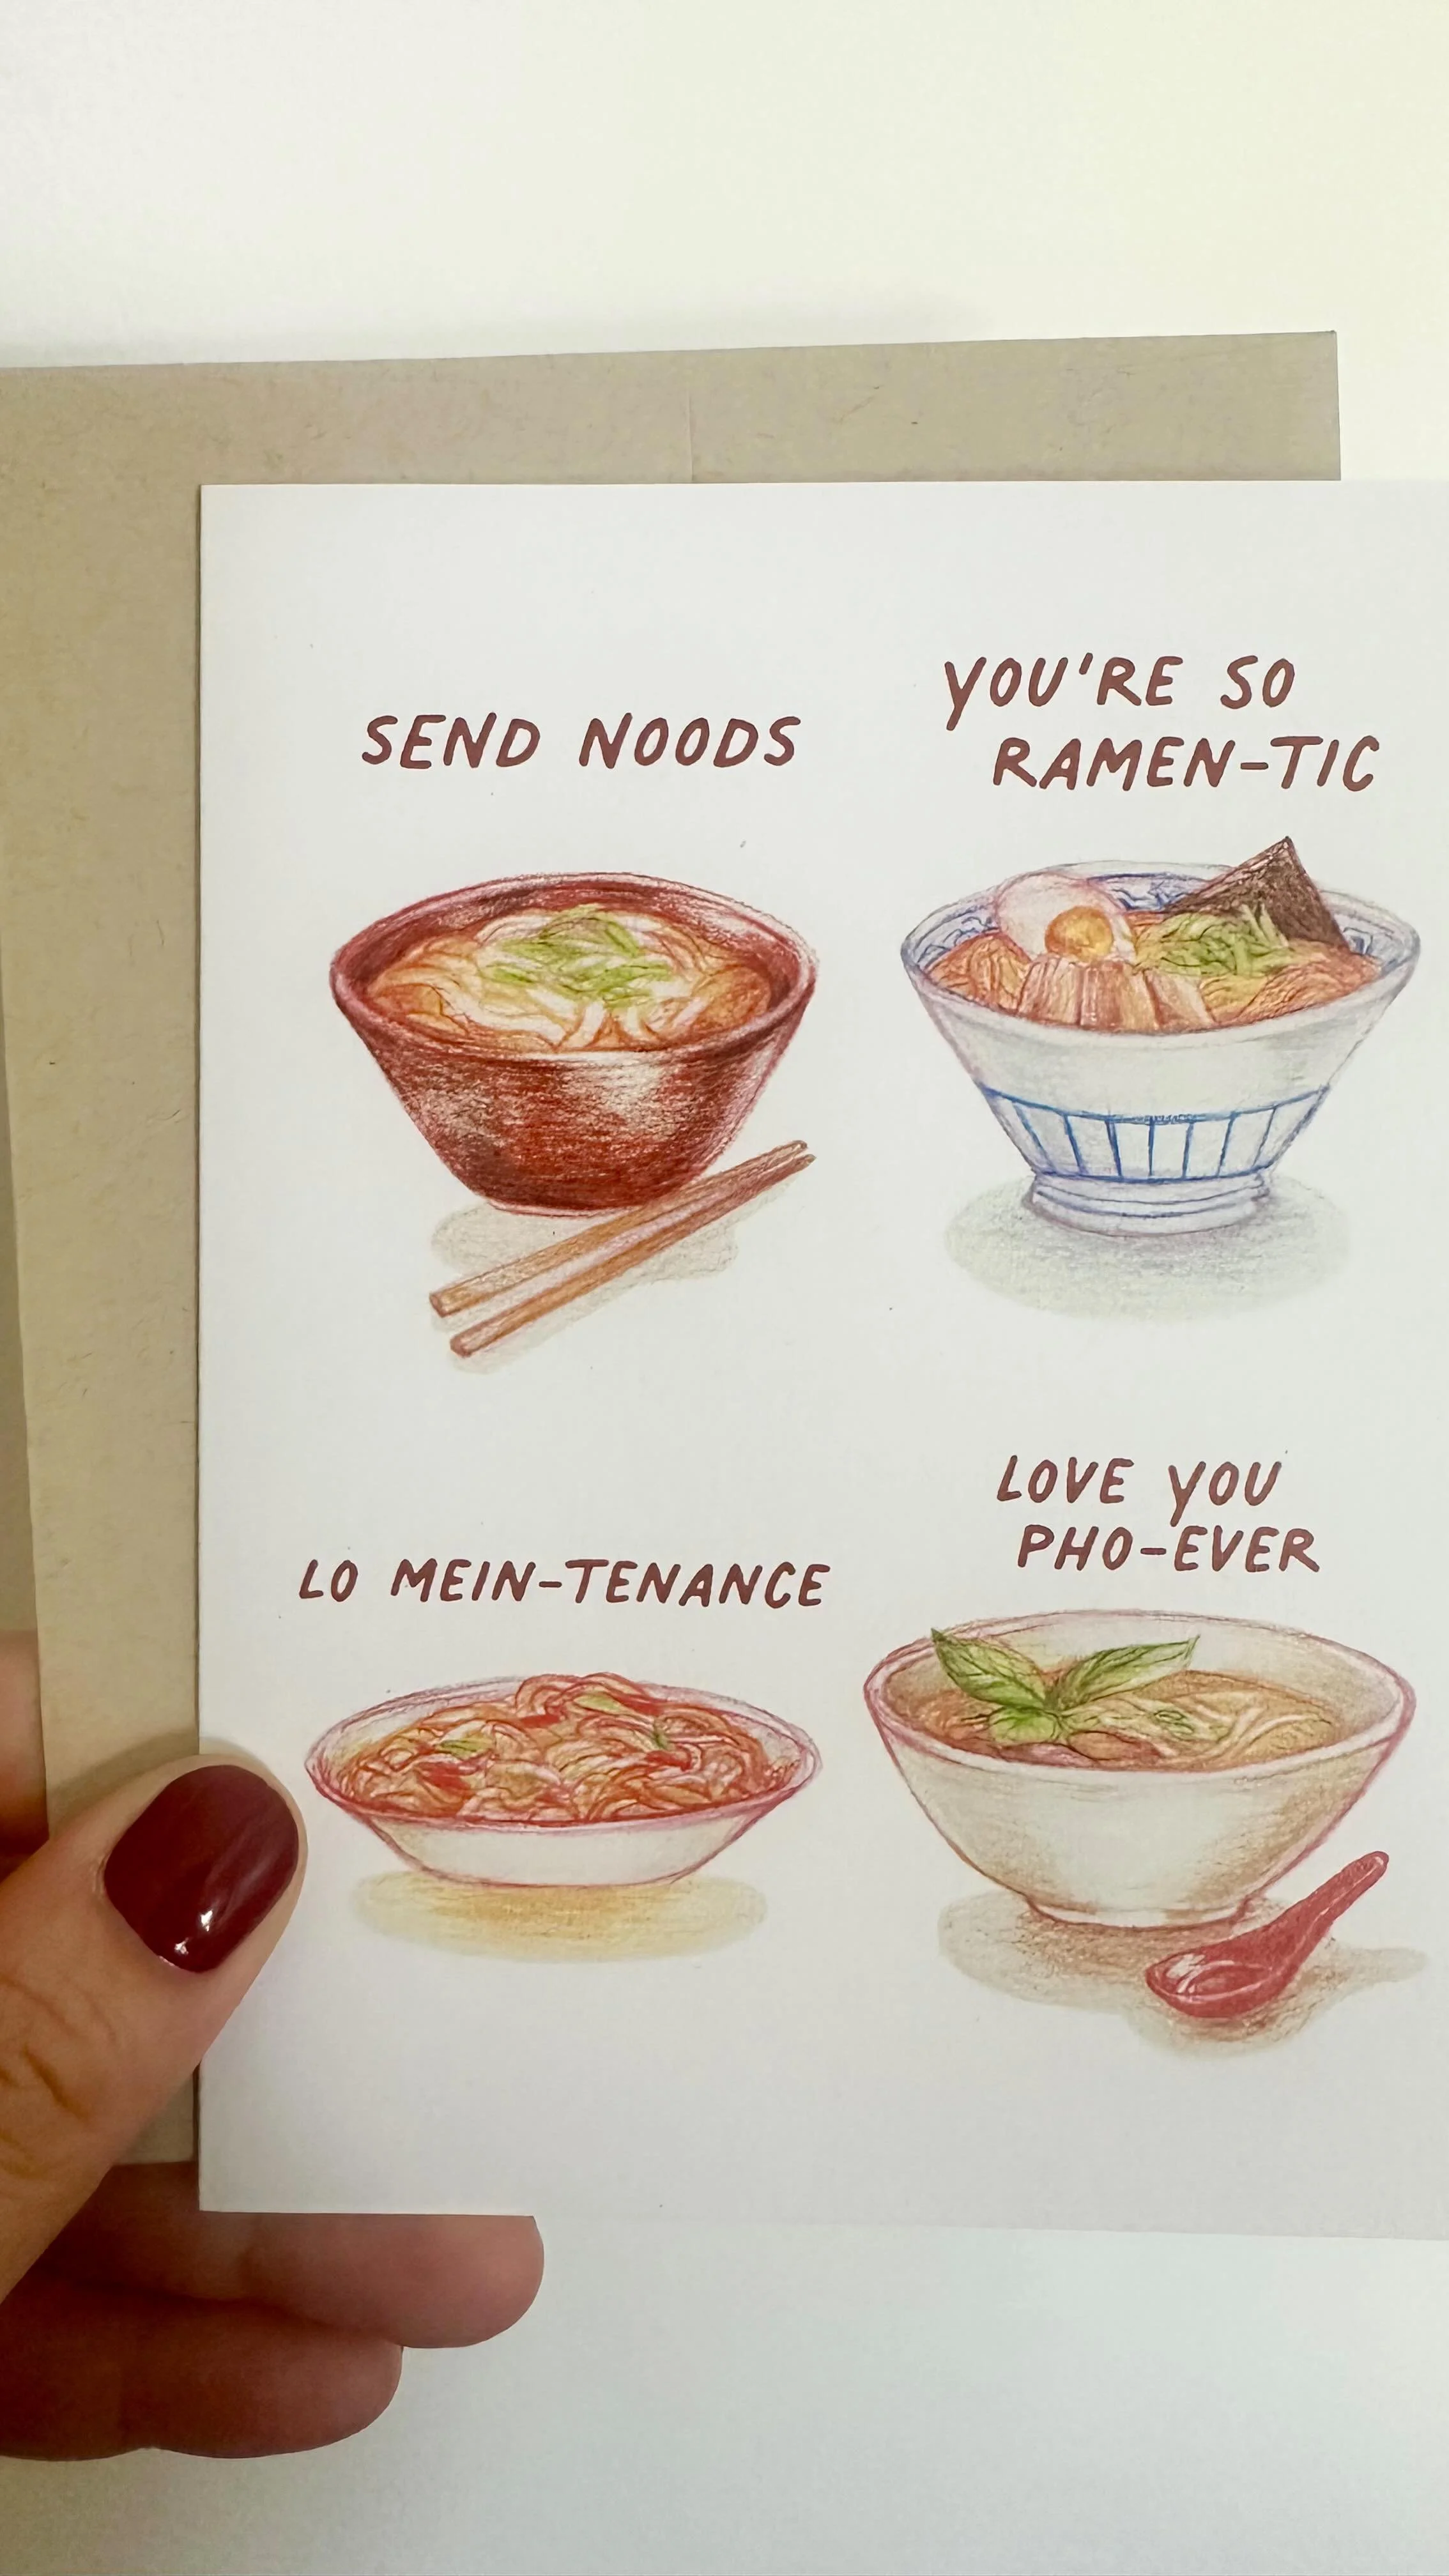 SEND NOODS
YOU'RE SO
RAMEN-TIC
LO MEIN-TENANCE
LOVE YOU
PHO-EVER